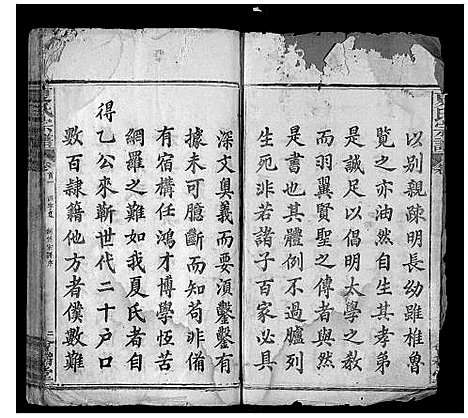 以别親疎明長幼雖椎魯
覧之亦油然自生其孝弟
是誠足以倡明大學之教
而羽翼賢聖之傳者與然
書也其體例不過臚列
生死非若諸子百家必具
深文奥義而要須鑿鑿有
據未可臆斷而知苟非備
有宿構任鴻才博學恆苦
網羅之難如我夏氏者自
得乙公來蘄世代二十户口
數百隷籍他方者僕數難
夏氏宗譜